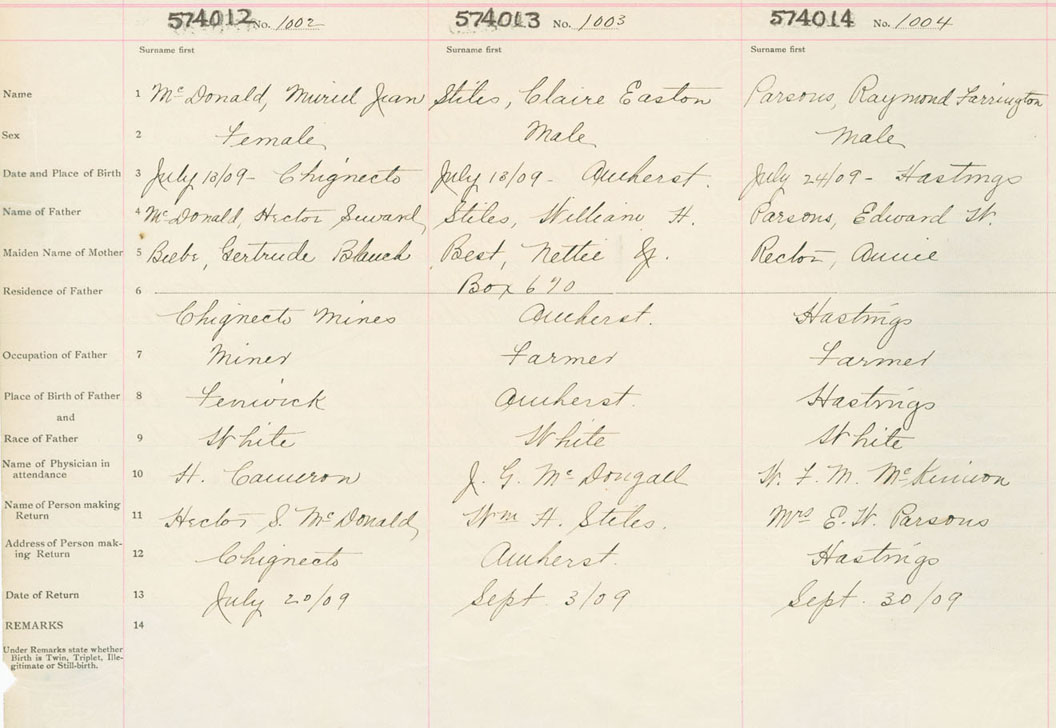 574012 No. 1002 574013 No. 1003 574014 No. 1004
Surname first Surname first Surname first
Name 1 McDonald, Muriel Jean Stiles, Claire Easton Parsons, Raymond Farrington
Sex 2 Female Male Male
Date and Place of Birth 3 July 13/09 - Chignecto July 13/09 - Amherst. July 24/09 - Hastings
Name of Father 4 McDonald, Hector Seward Stiles, William H. Parsons, Edward W.
Maiden Name of Mother 5 Beebe, Gertrude Blanch Best, Nettie J. Rector, Annie
Residence of Father 6 Box 670
Chignecto Mines Amherst. Hastings
Occupation of Father 7 Miner Farmer Farmer
Place of Birth of Father 8 Fenwick Amherst. Hastings
and
Race of Father 9 White White White
Name of Physician in
attendance 10 H. Cameron J. G. McDougall W. F. M. McKinnon
Name of Person making
Return 11 Hector S. McDonald Wm H. Stiles. Mrs E. W. Parsons
Address of Person mak-
ing Return 12 Chignecto Amherst. Hastings
Date of Return 13 July 20/09 Sept. 3/09 Sept. 30/09
REMARKS 14
Under Remarks state whether
Birth is Twin, Triplet, Ille-
gitimate or Still-birth.